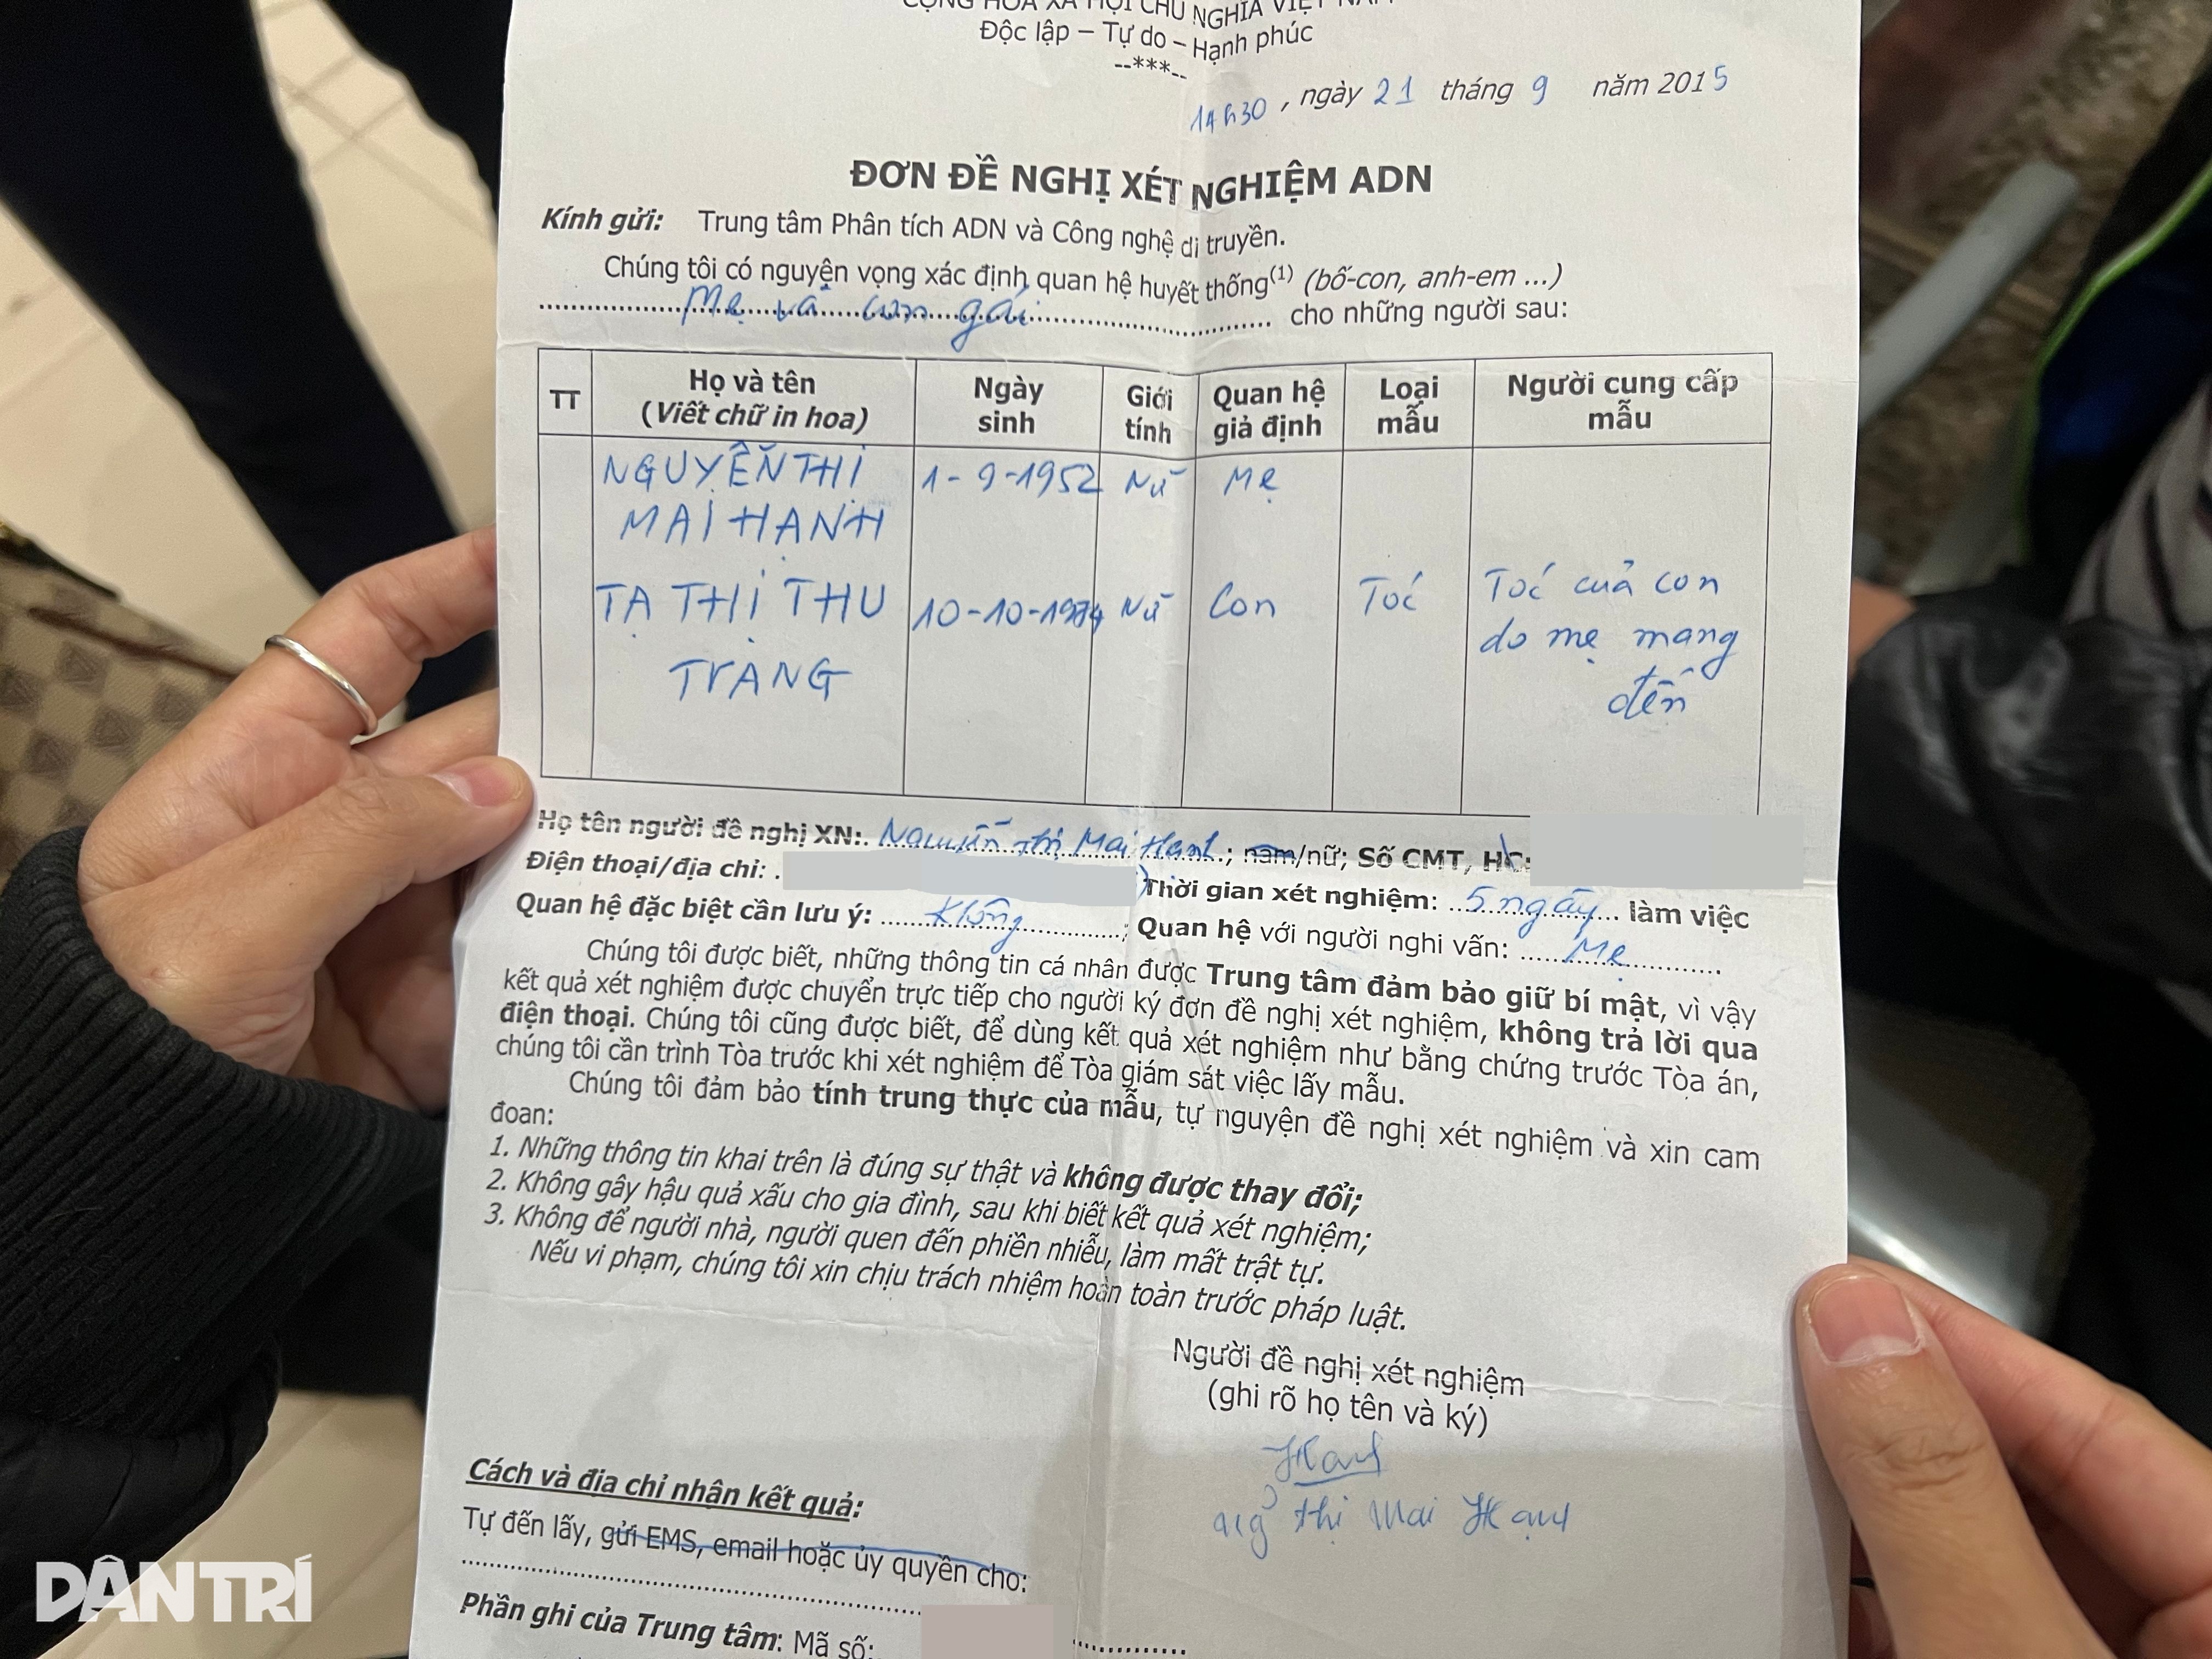 CỘNG HÒA XÃ HỘI CHỦ NGHĨA VIỆT NAM
Độc lập – Tự do – Hạnh phúc
--***--
14h30, ngày 21 tháng 9 năm 2015
ĐƠN ĐỀ NGHỊ XÉT NGHIỆM ADN
Kính gửi: Trung tâm Phân tích ADN và Công nghệ di truyền.
Chúng tôi có nguyện vọng xác định quan hệ huyết thống(1) (bố-con, anh-em ...)
Mẹ và con gái cho những người sau:
TT Họ và tên (Viết chữ in hoa) Ngày sinh Giới tính Quan hệ giả định Loại mẫu Người cung cấp mẫu
NGUYỄN THỊ 1-9-1952 Nữ Mẹ
MAI HẠNH
TẠ THỊ THU 10-10-1974 Nữ Con Tóc Tóc của con
do mẹ mang
TRANG đến
Họ tên người đề nghị XN: Nguyễn Thị Mai Hạnh; nam/nữ; Số CMT, HC:
Điện thoại/địa chỉ: . Thời gian xét nghiệm: 5 ngày làm việc
Quan hệ đặc biệt cần lưu ý: Không; Quan hệ với người nghi vấn: Mẹ
Chúng tôi được biết, những thông tin cá nhân được Trung tâm đảm bảo giữ bí mật, vì vậy
kết quả xét nghiệm được chuyển trực tiếp cho người ký đơn đề nghị xét nghiệm, không trả lời qua
điện thoại. Chúng tôi cũng được biết, để dùng kết quả xét nghiệm như bằng chứng trước Tòa án,
chúng tôi cần trình Tòa trước khi xét nghiệm để Tòa giám sát việc lấy mẫu.
Chúng tôi đảm bảo tính trung thực của mẫu, tự nguyện đề nghị xét nghiệm và xin cam
đoan:
1. Những thông tin khai trên là đúng sự thật và không được thay đổi;
2. Không gây hậu quả xấu cho gia đình, sau khi biết kết quả xét nghiệm;
3. Không để người nhà, người quen đến phiền nhiễu, làm mất trật tự.
Nếu vi phạm, chúng tôi xin chịu trách nhiệm hoàn toàn trước pháp luật.
Người đề nghị xét nghiệm
(ghi rõ họ tên và ký)
Hạnh
Ng Thị Mai Hạnh
Cách và địa chỉ nhận kết quả:
Tự đến lấy, gửi EMS, email hoặc ủy quyền cho:
Phần ghi của Trung tâm: Mã số:
DÂN TRÍ